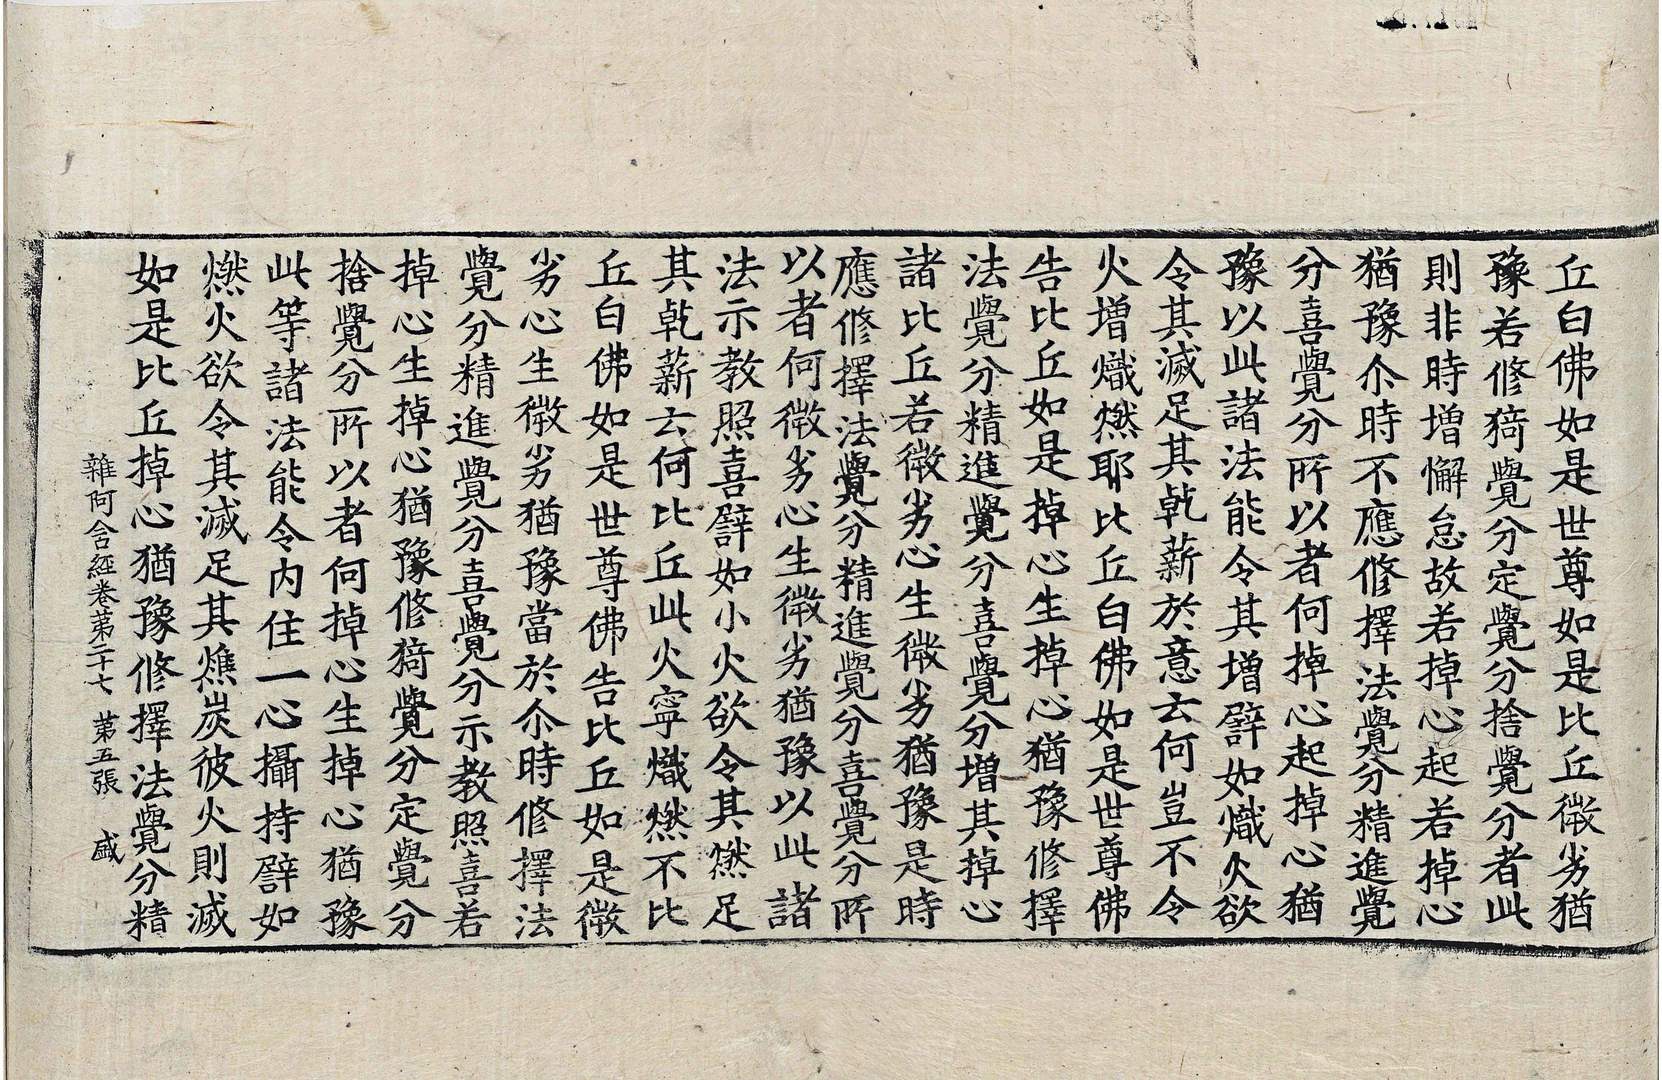 丘白佛如是世尊如是比丘微劣猶
豫若修猗覺分定覺分捨覺分者此
則非時増懈怠故若掉心起若掉心
猶豫尒時不應修擇法覺分精進覺
分喜覺分所以者何掉心起掉心猶
豫以此諸法能令其増譬如熾火欲
令其滅足其乹薪於意云何豈不令
火増熾燃耶比丘白佛如是世尊佛
告比丘如是掉心生掉心猶豫修擇
法覺分精進覺分喜覺分増其掉心
諸比丘若微劣心生微劣猶豫是時
應修擇法覺分精進覺分喜覺分所
以者何微劣心生微劣猶豫以此諸
法示教照喜譬如小火欲令其燃足
其乹薪云何比丘此火寧熾燃不比
丘白佛如是世尊佛告比丘如是微
劣心生微劣猶豫當於尒時修擇法
覺分精進覺分喜覺分示教照喜若
掉心生掉心猶豫修猗覺分定覺分
捨覺分所以者何掉心生掉心猶豫
此等諸法能令内住一心攝持譬如
燃火欲令其滅足其燋炭彼火則滅
如是比丘掉心猶豫修擇法覺分精
雜阿含經卷第二十七 第五張 盛